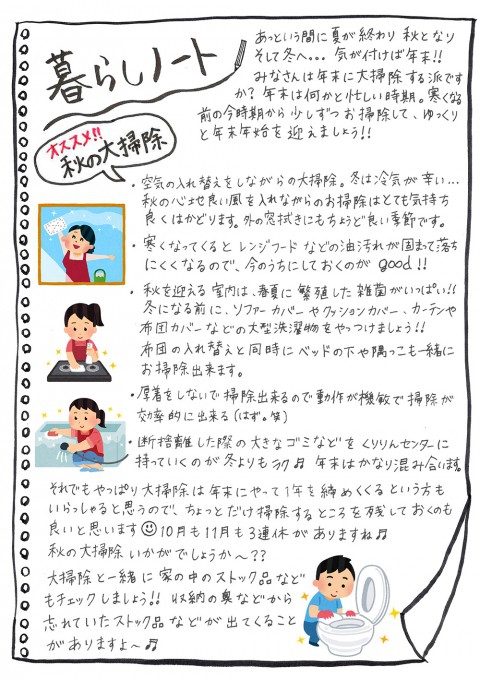 暮らしノート
あっという間に夏が終わり 秋となり
そして冬へ... 気が付けば年末!!
みなさんは年末に大掃除する派です
か？ 年末は何かと忙しい時期。寒くなる
前の今時期から少しずつお掃除して、ゆっくり
と年末年始を迎えましょう!!
オススメ!!
秋の大掃除
・空気の入れ替えをしながらの大掃除。冬は冷気が辛い...
秋の心地良い風を入れながらのお掃除はとても気持ち
良くはかどります。外の窓拭きにもちょうど良い季節です。
・寒くなってくると レンジフードなどの油汚れが固まって落ち
にくくなるので、今のうちにしておくのが good!!
・秋を迎える室内は、春夏に繁殖した雑菌がいっぱい!!
冬になる前に、ソファーカバーやクッションカバー、カーテンや
布団カバーなどの大型洗濯物をやっつけましょう!!
布団の入れ替えと同時にベッドの下や隅っこも一緒に
お掃除出来ます。
・厚着をしないで掃除出来るので動作が機敏で掃除が
効率的に出来る(はず。笑)
・断捨離した際の大きなゴミなどをくりりんセンターに
持っていくのが冬よりもラク♬ 年末はかなり混み合います。
それでもやっぱり大掃除は年末にやって1年を締めくくるという方も
いらっしゃると思うので、ちょっとだけ掃除するところを残しておくのも
良いと思います☺10月も11月も3連休がありますね♬
秋の大掃除いかがでしょうか〜??
大掃除と一緒に家の中のストック品なども
チェックしましょう!! 収納の奥などから
忘れていたストック品などが出てくること
がありますよ〜♬